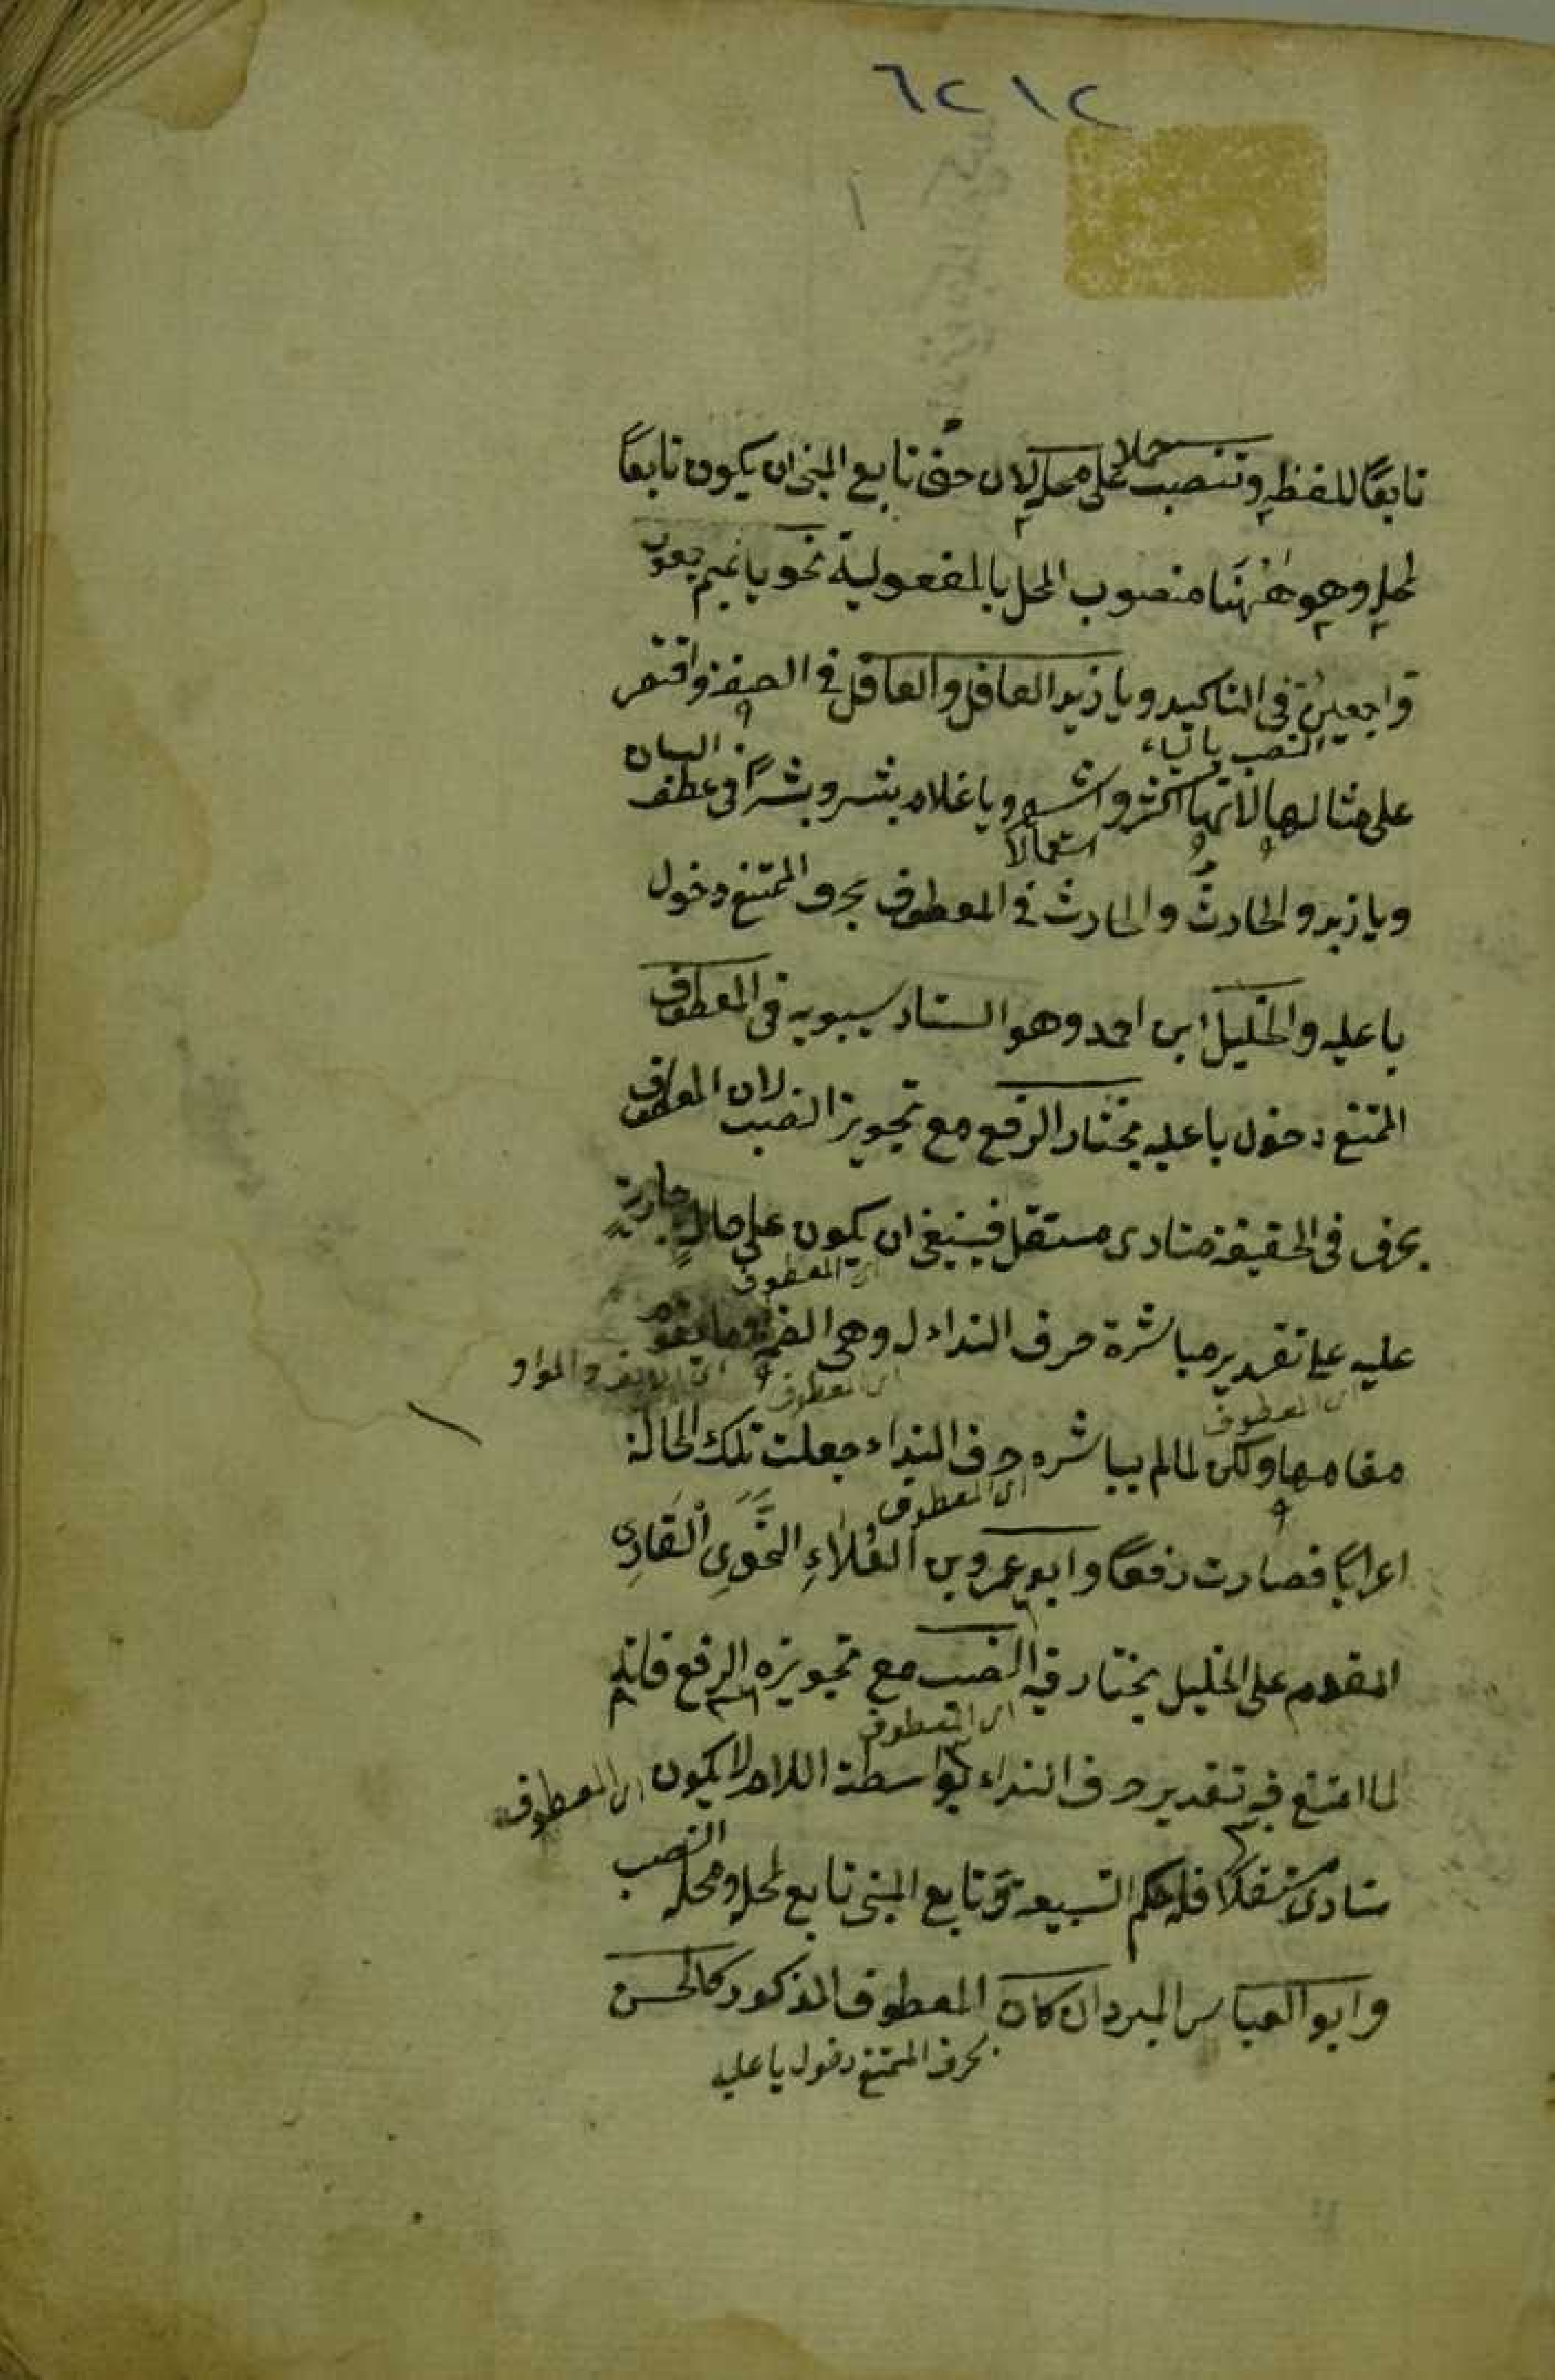 ٦٢١٢
١
تابعًا للفظه وتنصب حملا على محله لان حق تابع المبنى ان يكون تابعًا
لمحله وهو هٰهُنَا منصوب المحل بالمفعولية نحو يا تميم اجمعون
واجمعين فى التاكيد ويا زيد العاقل والعاقل فى الصفة واقتصر
النصب بالياء
على مثالها لانها اكثر واشهر ويا غلام بشر وبشرًا فى عطف البيان
استعمالا
ويا زيد والحارثُ والحارث فى المعطوف بحرف الممتنع دخول
يا عليه والخليل ابن احمد وهو استاد سيبويه فى المعطوف
الممتنع دخول يا عليه يختار الرفع مع تجويز النصب لان المعطوف
بحرف فى الحقيقة منادى مستقل فينبغى ان يكون على حالةٍ جارية
اى المعطوف
عليه على تقدير مباشرة حرف النداء له وهى الضمة
اى المعطوف
اى المعطوف
مقامها ولكن لما لم يباشره حرف النداء جعلت تلك الحالة
اى المعطوف
اعرابًا فصارت رفعًا وابو عمرو بن العَلَاءِ النَّحْوِى الْقَارِى
المقدم على الخليل يختار فيه النصب مع تجويزه الرفع فانه
اى المعطوف
لما امتنع فيه تقدير حرف النداء بواسطة اللام لا يكون
اى المعطوف
منادى مستقلا فله حكم التبيعة وتابع المبنى تابع لمحله ومحله النصب
وابو العباس المبرد ان كان المعطوف المذكور كالحسن
بحرف الممتنع دخول يا عليه